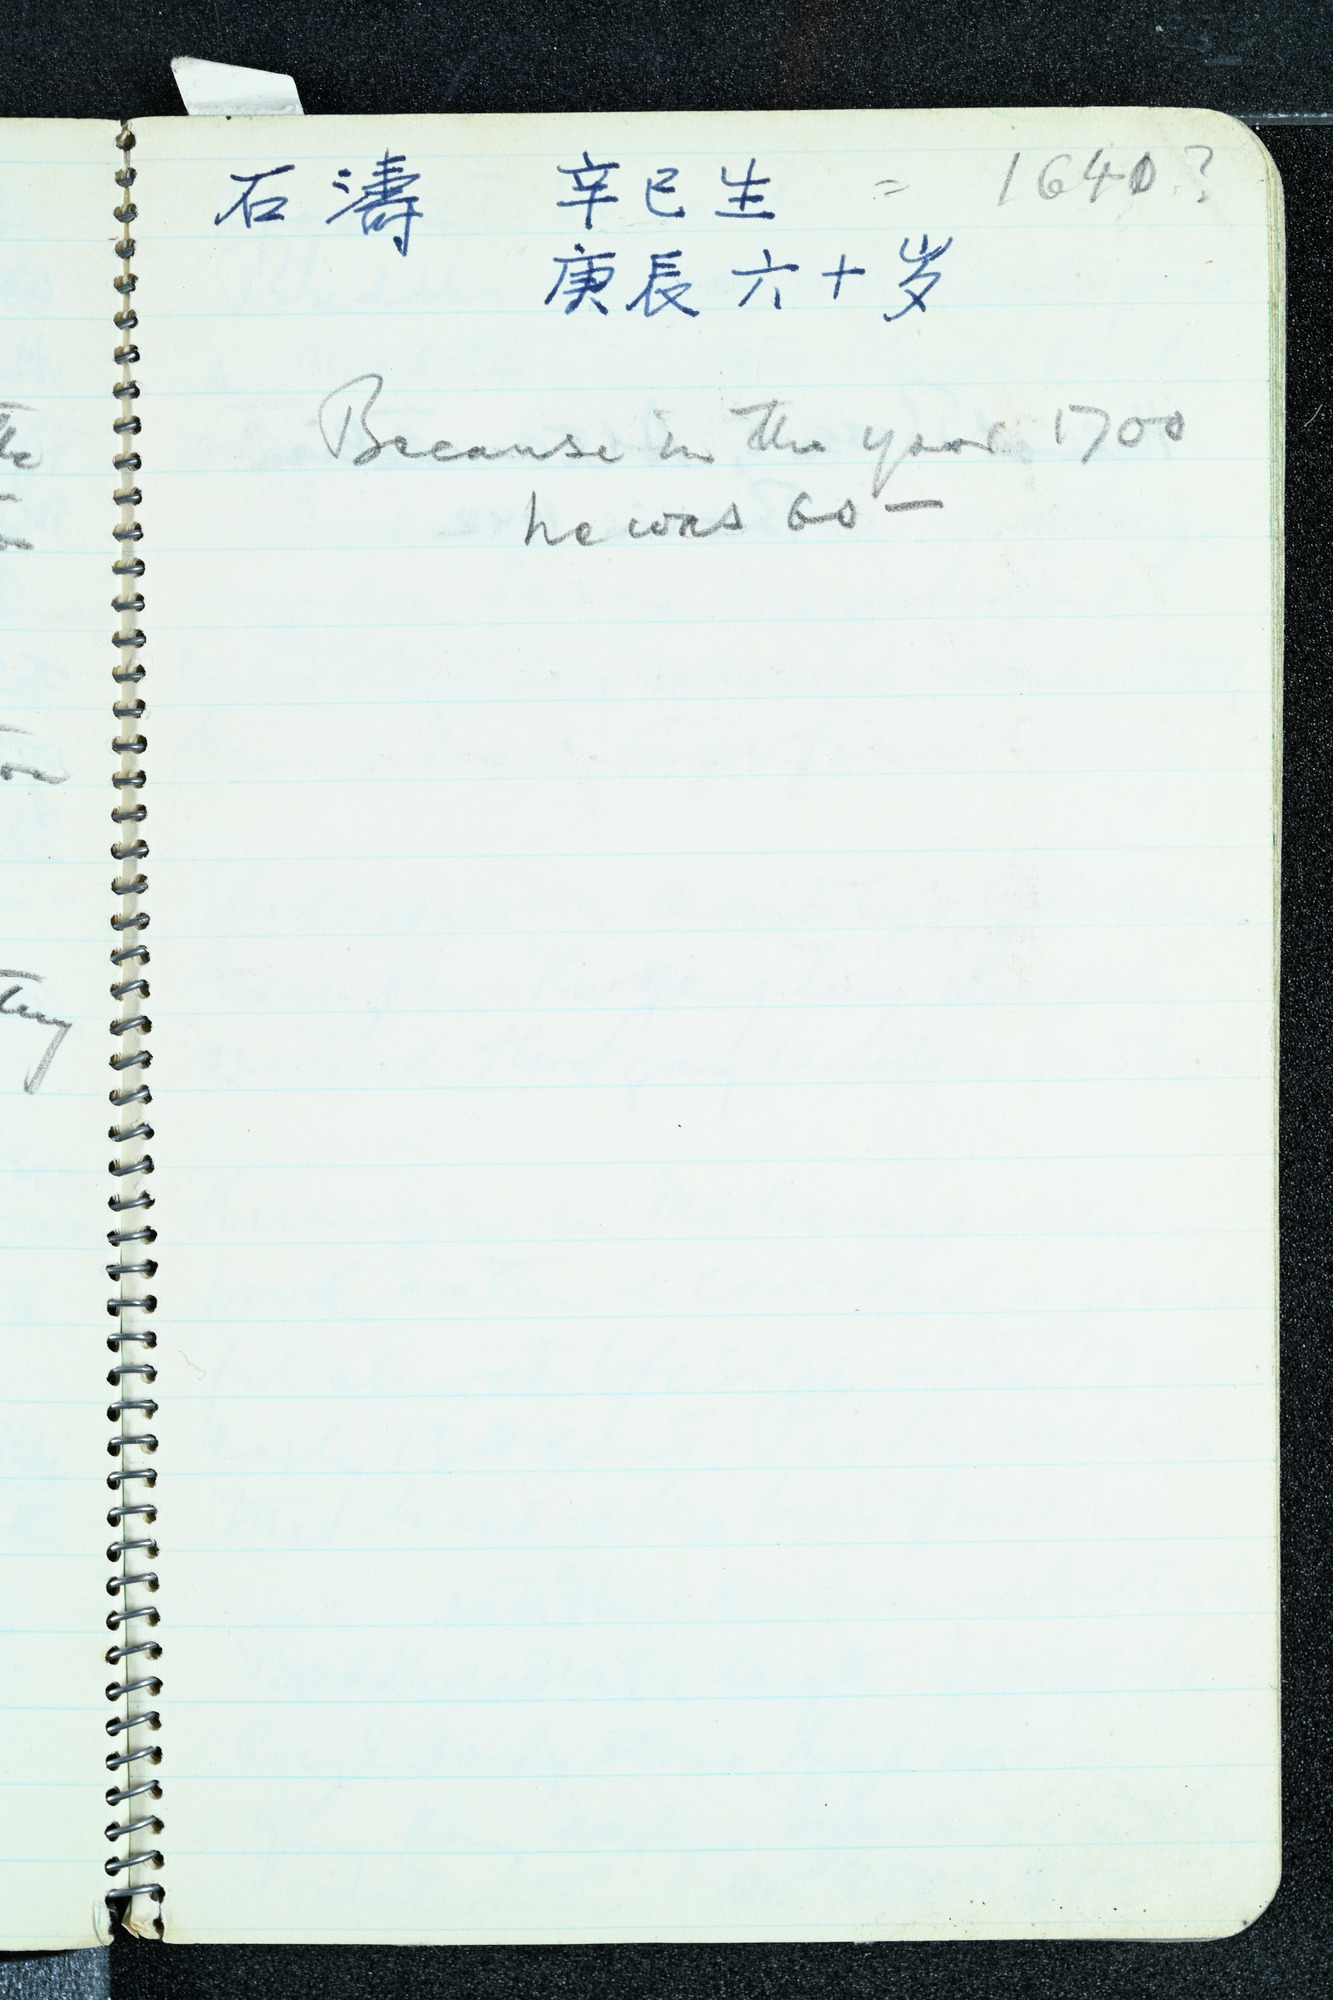 石濤 辛巳生 = 1640?
庚長六十岁
Because in the year 1700
he was 60 —
the
ton